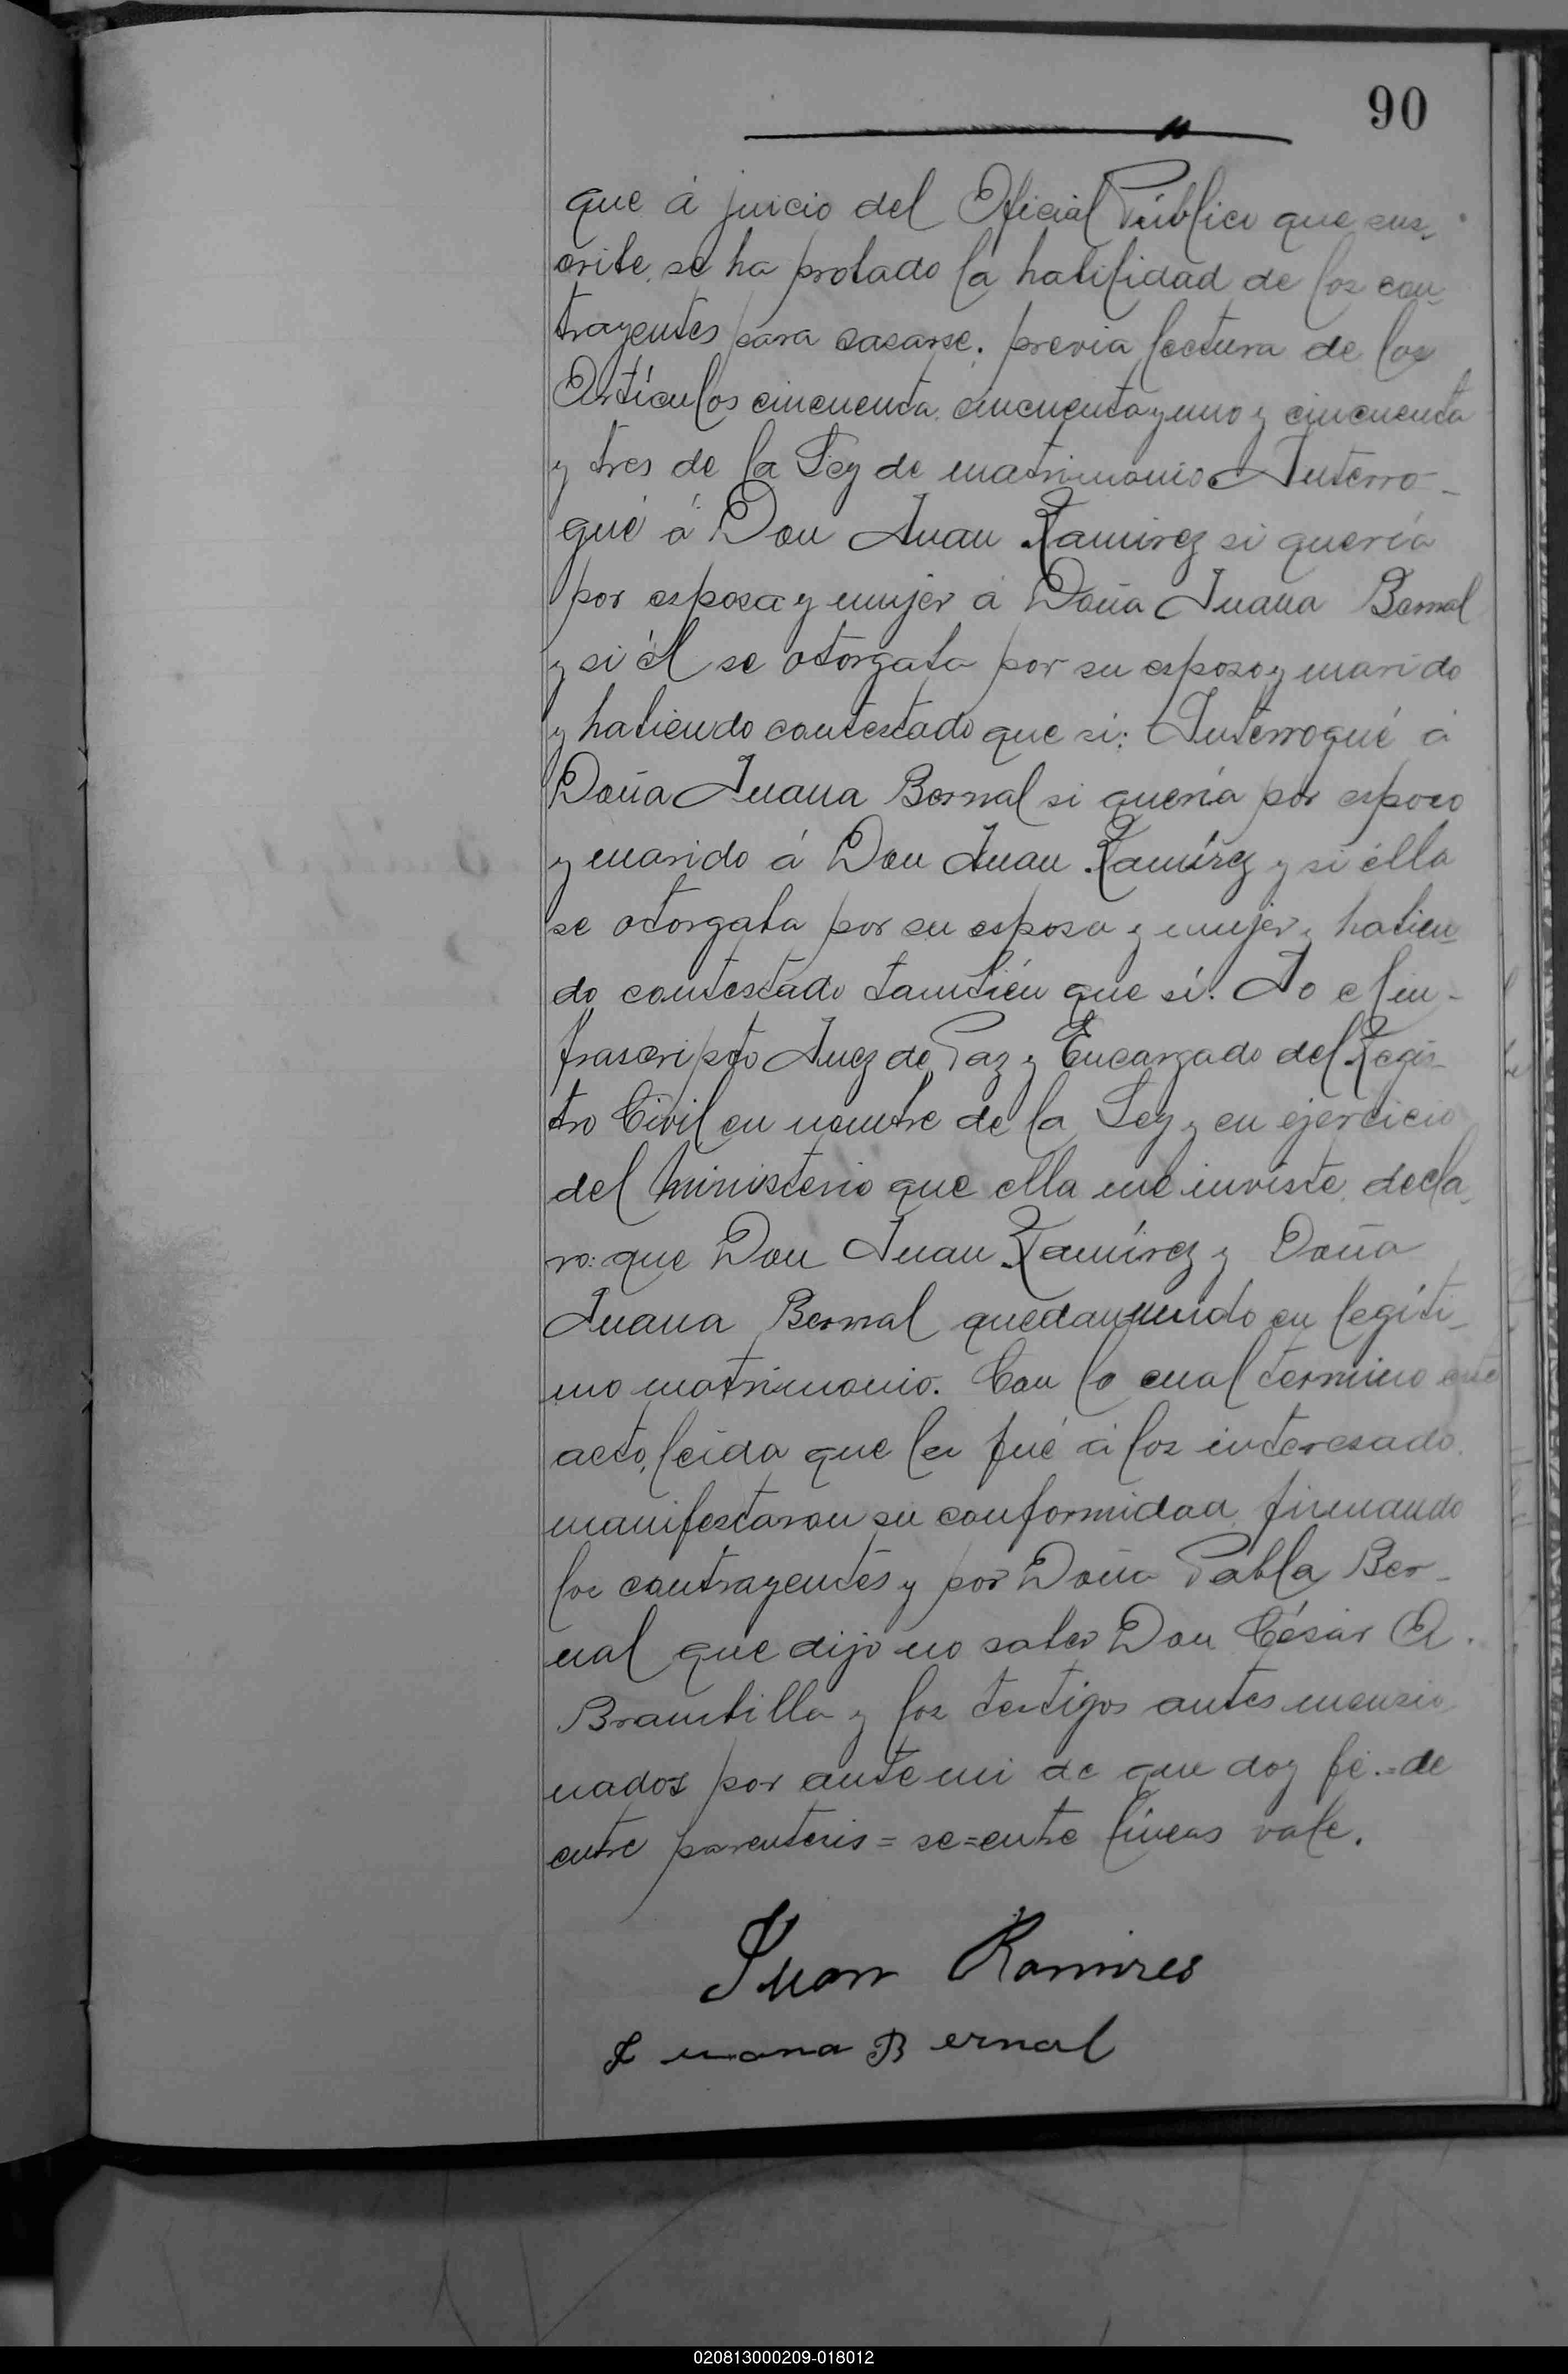 90
que á juicio del Oficial Público que sus-
cribe, se ha probado la habilidad de los con-
trayentes para casarse; previa lectura de los
Artículos cincuenta, cincuenta y uno y cincuenta
y tres de la Ley de matrimonio Interro-
gué á Don Juan Ramirez si quería
por esposa y mujer á Doña Juana Bernal
y si él se otorgaba por su esposo y marido
y habiendo contestado que si: Interrogué á
Doña Juana Bernal si quería por esposo
y marido á Don Juan Ramírez y si élla
se otorgaba por su esposa y mujer y habien-
do contestado también que sí. Yo el in-
frascripto Juez de Paz y Encargado del Regis-
tro Civil en nombre de la Ley y en ejercicio
del Ministerio que ella me inviste, decla-
ro: que Don Juan Ramírez y Doña
Juana Bernal quedan unido en legíti-
mo matrimonio. Con lo cual termino este
acto, leida que le fué á los interesado
manifestaron su conformidad, firmando
los contrayentes y por Doña Pabla Ber-
nal que dijo no saber Don César A.
Brambilla y los testigos antes mensio
nados por ante mi de que doy fé.=de
entre parenteris=se=entre líneas vale.
Juan Ramires
Juana Bernal
020813000209-018012